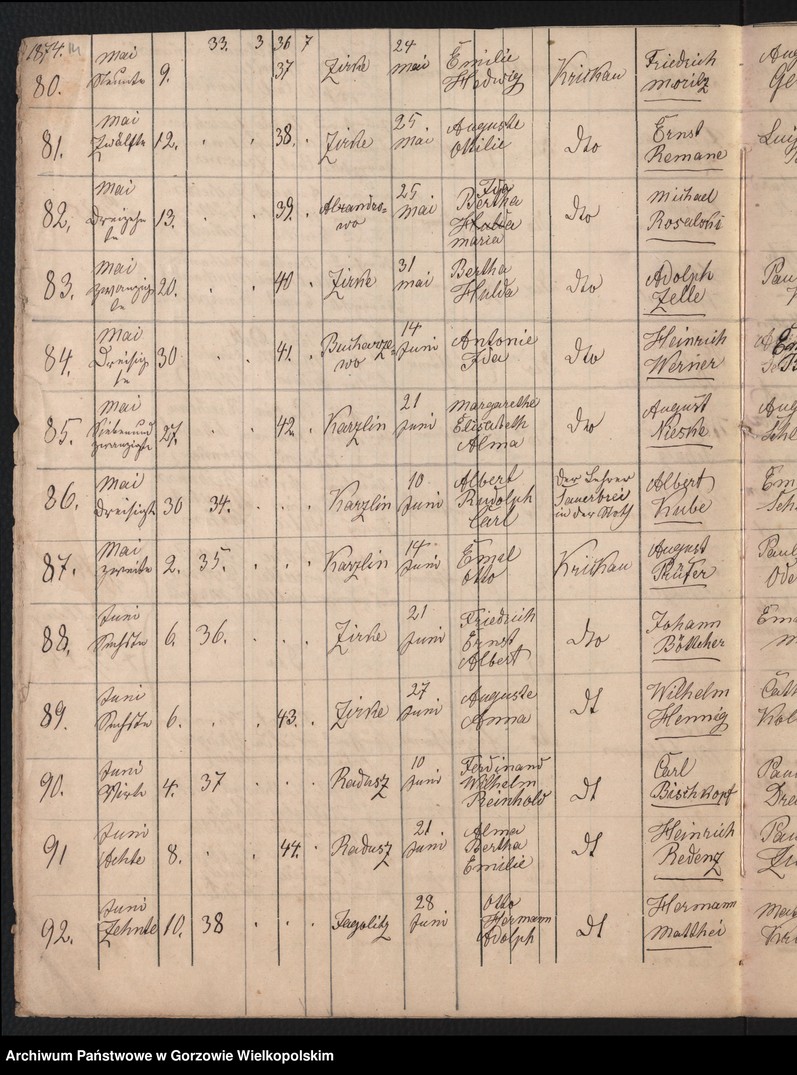 1874.
33. 3 36 7
80. Mai Neunte 9. 37 Zirke 24 Mai Emilie Hedwig Kriskau Friedrich Moritz
81. Mai Zwölfte 12. 38. Zirke 25 Mai Auguste Ottilie dto Ernst Remane
82. Mai Dreizehnte 13. 39. Alexandrowo 25 Mai Ida Bertha Hulda Maria dto Michael Rosalski
83. Mai zwanzigste 20. 40 Zirke 31 Mai Bertha Hulda dto Adolph Zelle
84. Mai Dreisigste 30 41. Bucharzewo 14 Juni Antonie Ida dto Heinrich Werner
85. Mai Siebenundzwanzigste 27. 42. Karzlin 21 Juni Margarethe Elisabeth Alma dto August Nieske
86. Mai dreisigst 30 34. Karzlin 10 Juni Albert Rudolph Carl Der Lehrer Sauerbrei in der Noth Albert Kube
87. Mai zweite 2. 35. Karzlin 14 Juni Emil Otto Kriskau August Prüfer
88. Juni Sechste 6. 36. Zirke 21 Juni Friedrich Ernst Albert dto Johann Böttcher
89. Juni Sechste 6. 43. Zirke 27 Juni Auguste Anna dt Wilhelm Hennig
90. Juni Virte 4. 37 Radusz 10 Juni Ferdinand Wilhelm Reinhold dt Carl Bischkopf
91 Juni Achte 8. 44. Radusz 21 Juni Alma Bertha Emilie dt Heinrich Redenz
92. Juni Zehnte 10. 38 28 Juni Otto Hermann Adolph dt Hermann Matthei
Archiwum Państwowe w Gorzowie Wielkopolskim